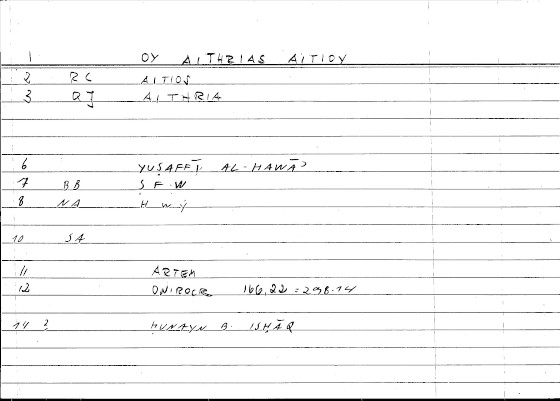 1 OY AITHRIAS AITIOY
2 RC AITIOS
3 QJ AITHRIA
6 YUṢAFFĪ AL-HAWĀʾ
7 BB Ṣ F W
8 NA H W Y
10 SA
11 ARTEM
12 ONIROCR 166,22 = 298.14
14 2 ḤUNAYN B. ISḤĀQ